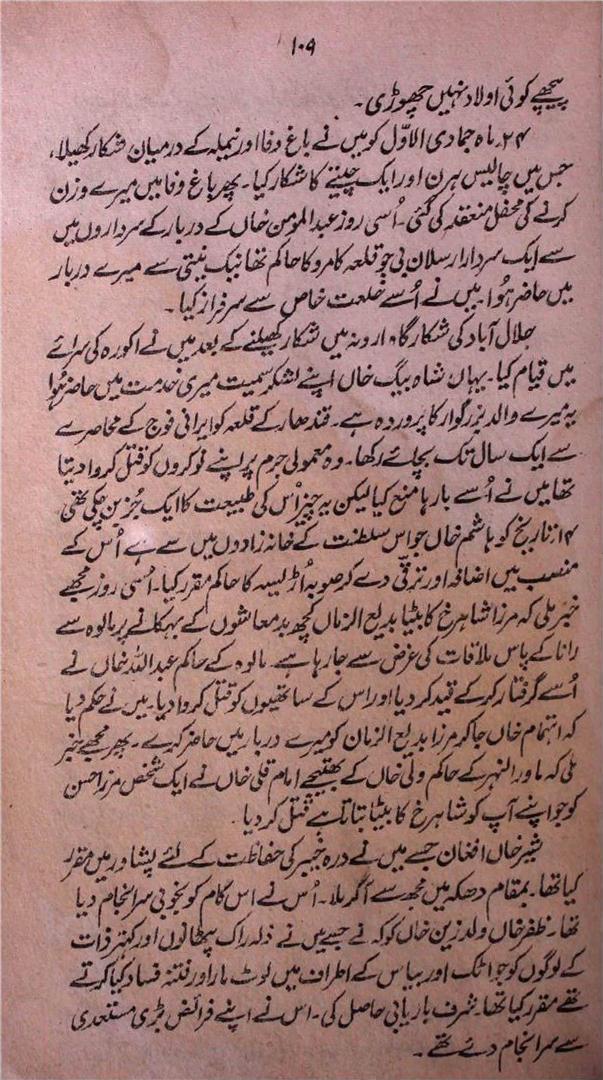 ۱۰۹
پیچھے کوئی اولاد نہیں چھوڑی۔
۲۴۔ ماہ جمادی الاوّل کو میں نے باغ وفا اور نیملہ کے درمیان شکار کھیلا،
جس میں چالیس ہرن اور ایک چیتے کا شکار کیا۔ پھر باغ وفا میں میرے وزن
کرنے کی محفل منعقد کی گئی۔ اُسی روز عبدالمومن خاں کے دربار کے سرداروں میں
سے ایک سردار ارسلان بی جو قلعہ کامرو کا حاکم تھا نیک نیتی سے میرے دربار
میں حاضر ہُوا۔ میں نے اُسے خلعت خاص سے سرفراز کیا۔
جلال آباد کی شکارگاہ ارونہ میں شکار کھیلنے کے بعد میں نے اکورہ کی سرائے
میں قیام کیا۔ یہاں شاہ بیگ خاں اپنے لشکر سمیت میری خدمت میں حاضر ہُوا
یہ میرے والد بزرگوار کا پروردہ ہے۔ قندھار کے قلعہ کو ایرانی فوج کے محاصرے
سے ایک سال تک بچائے رکھا۔ وہ معمولی جرم پر اپنے نوکروں کو قتل کروا دیتا
تھا میں نے اُسے بارہا منع کیا لیکن یہ چیز اُس کی طبیعت کا ایک جُز بن چکی تھی
۱۴۔ تاریخ کو ہاشم خاں جو اس سلطنت کے خانہ زادوں میں سے ہے اُس کے
منصب میں اضافہ اور ترقی دے کر صوبہ اُڑلیسہ کا حاکم مقرر کیا۔ اُسی روز مجھے
خبر ملی کہ مرزا شاہرخ کا بیٹا بدیع الزماں کچھ بدمعاشوں کے بہکانے پر مالوہ سے
رانا کے پاس ملاقات کی غرض سے جا رہا ہے۔ مالوہ کے حاکم عبداللہ خاں نے
اُسے گرفتار کر کے قید کر دیا اور اس کے ساتھیوں کو قتل کروا دیا۔ میں نے حکم دیا
کہ اہتمام خاں جا کر مرزا بدیع الزمان کو میرے دربار میں حاضر کرے۔ پھر مجھے خبر
ملی کہ ماورالنہر کے حاکم ولی خاں کے بھتیجے امام قلی خاں نے ایک شخص مرزا حسن
کو جو اپنے آپ کو شاہرخ کا بیٹا بتاتا ہے قتل کر دیا۔
شیر خاں افغان جسے میں نے درہ خیبر کی حفاظت کے لئے پشاور میں مقرر
کیا تھا۔ بمقام دھکہ میں مجھ سے آ کر ملا۔ اُس نے اس کام کو بخوبی سرانجام دیا
تھا۔ ظفر خاں ولد زین خاں کوکہ نے جسے میں نے دلہ زاک پٹھانوں اور کہتر ذات
کے لوگوں کو جو اٹک اور بیاس کے اطراف میں لوٹ مار اور فتنہ فساد کیا کرتے
تھے مقرر کیا تھا۔ شرف باریابی حاصل کی۔ اس نے اپنے فرائض بڑی مستعدی
سے سرانجام دئے تھے۔